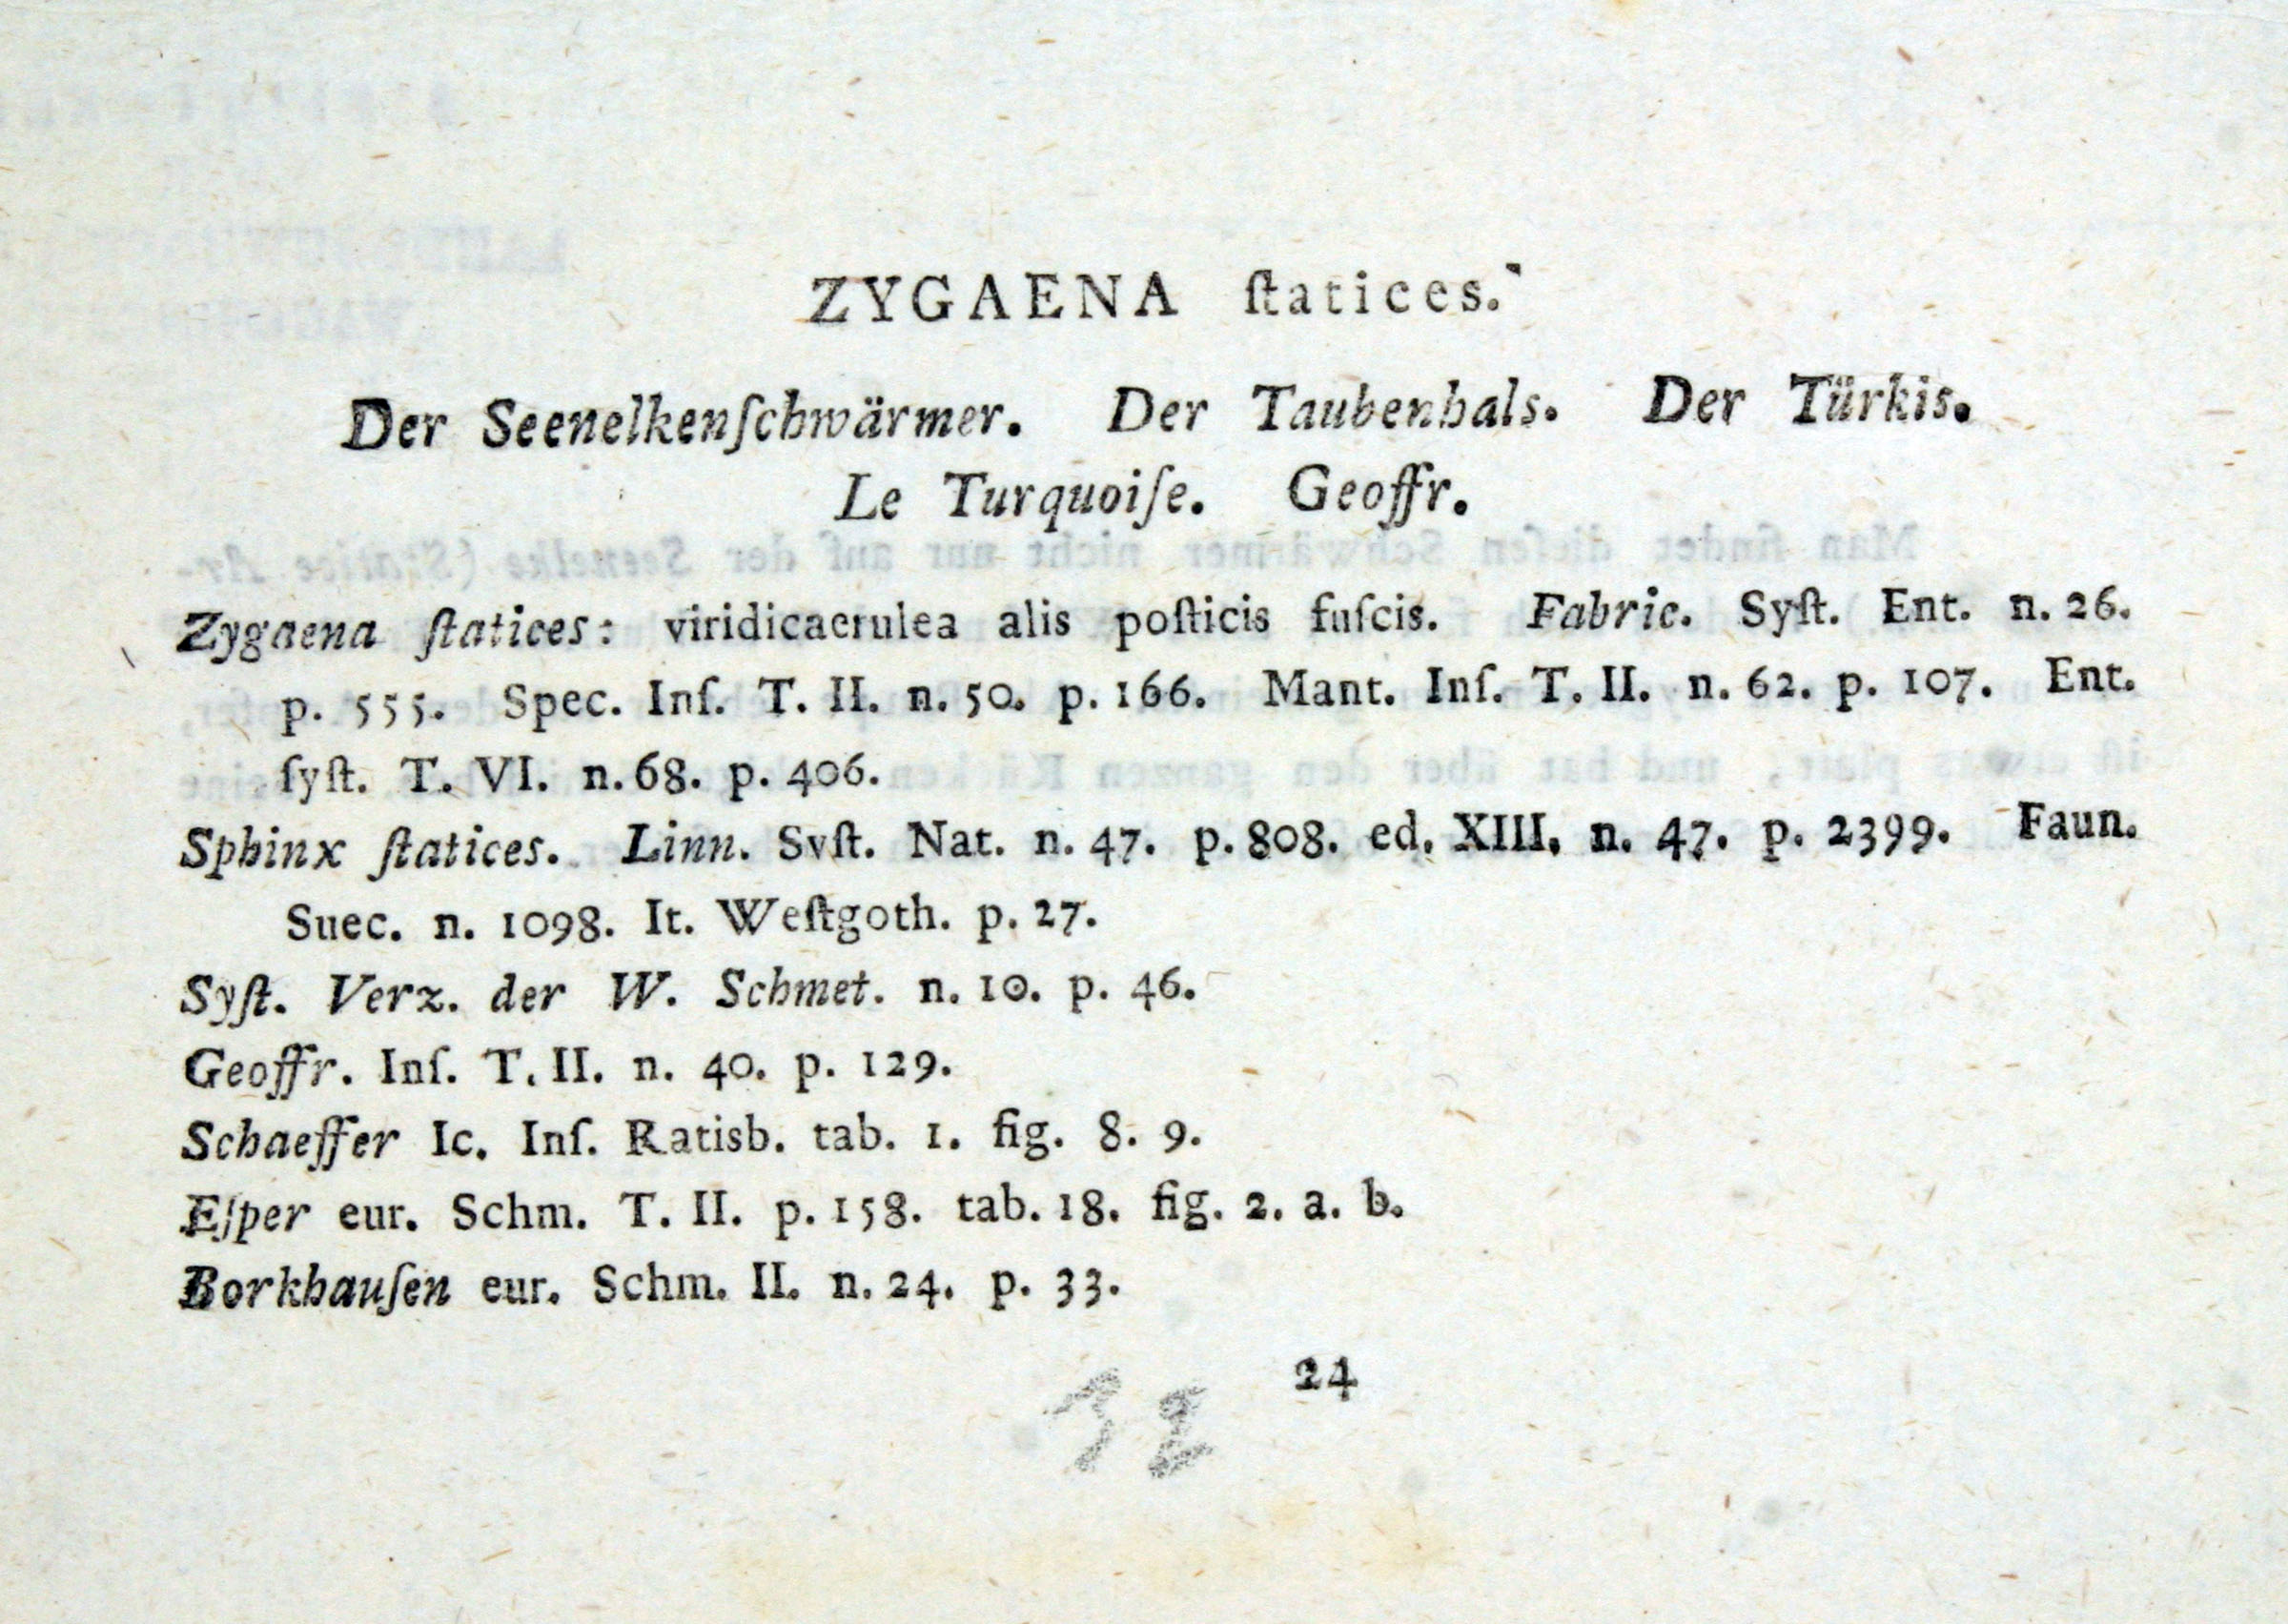 ZYGAENA ſtatices.
Der Seenelkenſchwärmer. Der Taubenhals. Der Türkis.
Le Turquoiſe. Geoffr.
Zygaena ſtatices: viridicaerulea alis poſticis fuſcis. Fabric. Syſt. Ent. n. 26.
p. 555. Spec. Inſ. T. II. n. 50. p. 166. Mant. Inſ. T. II. n. 62. p. 107. Ent.
ſyſt. T. VI. n. 68. p. 406.
Sphinx ſtatices. Linn. Syſt. Nat. n. 47. p. 808. ed. XIII. n. 47. p. 2399. Faun.
Suec. n. 1098. It. Weſtgoth. p. 27.
Syſt. Verz. der W. Schmet. n. 10. p. 46.
Geoffr. Inſ. T. II. n. 40. p. 129.
Schaeffer Ic. Inſ. Ratisb. tab. 1. fig. 8. 9.
Eſper eur. Schm. T. II. p. 158. tab. 18. fig. 2. a. b.
Borkhauſen eur. Schm. II. n. 24. p. 33.
24
32